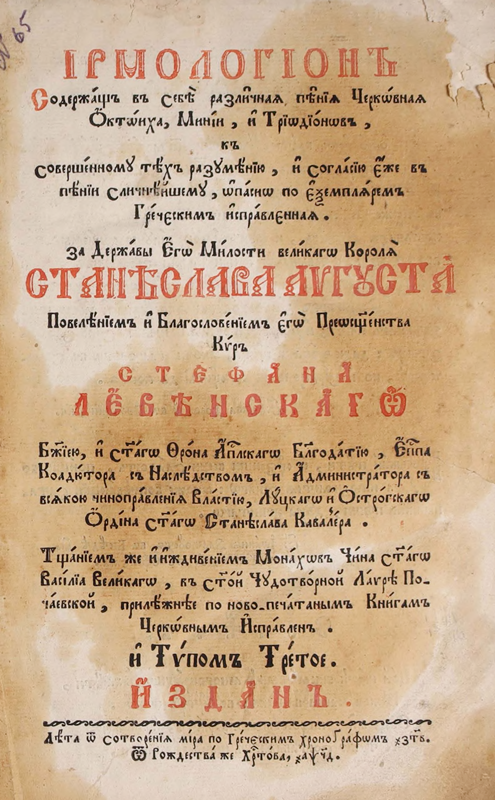 № 65
ІРМОЛОГІОНЪ
Содержащъ въ себѣ различная пѣнїѧ Черкѡвная
Ѻктѡиха, Минїи, и҆ Трїѡдїѡновъ,
къ
совершенному тѣхъ разумѣнїю, и҆ согласїю є҆же въ
пѣнїи сличнѣйшему, ѡпасѡ по є҆ѯемплѧремъ
Греческимъ и҆справленнаѧ.
За Державы Е҆гѡ Милости великагѡ Королѧ
СТАНѢСЛАВА АѴГꙊСТА
Повелѣнїемъ и҆ Благословенїемъ є҆гѡ Преѡсщ҃енства
Кѵръ
СТЕФАНА
ЛЕ҆ВѢНСКАГѠ
Бж҃їею, и҆ ст҃агѡ Ѳрона А҆пⷭ҇лскагѡ Блг҃одатїю, Е҆пⷭ҇па
Коадюторa съ Наслѣдствомъ, и҆ А҆дминистратора съ
всѧкою чиноправленїѧ Властїю, Лꙋцкагѡ и҆ Острогскагѡ
Ѻрдїна ст҃агѡ Станѣслава Кавалера.
Тщанїемъ же и҆ и҆ждивенїемъ Монахѡвъ Чина ст҃агѡ
Василїа Великагѡ, въ ст҃ой Чудотворной Лаѵрѣ По-
чаевской, прилѣжнѣе по ново-печатанымъ Книгамъ
Черкѡвнымъ И҆справленъ.
и҆ Тѵпомъ Третое.
И҆ЗДАНЪ.
Лѣта ѿ сотворенїѧ мїра по Греческимъ хронографѡмъ ҂зт҃в.
Ѿ Рождества же Хрⷭ҇това, ҂аѱч҃д.